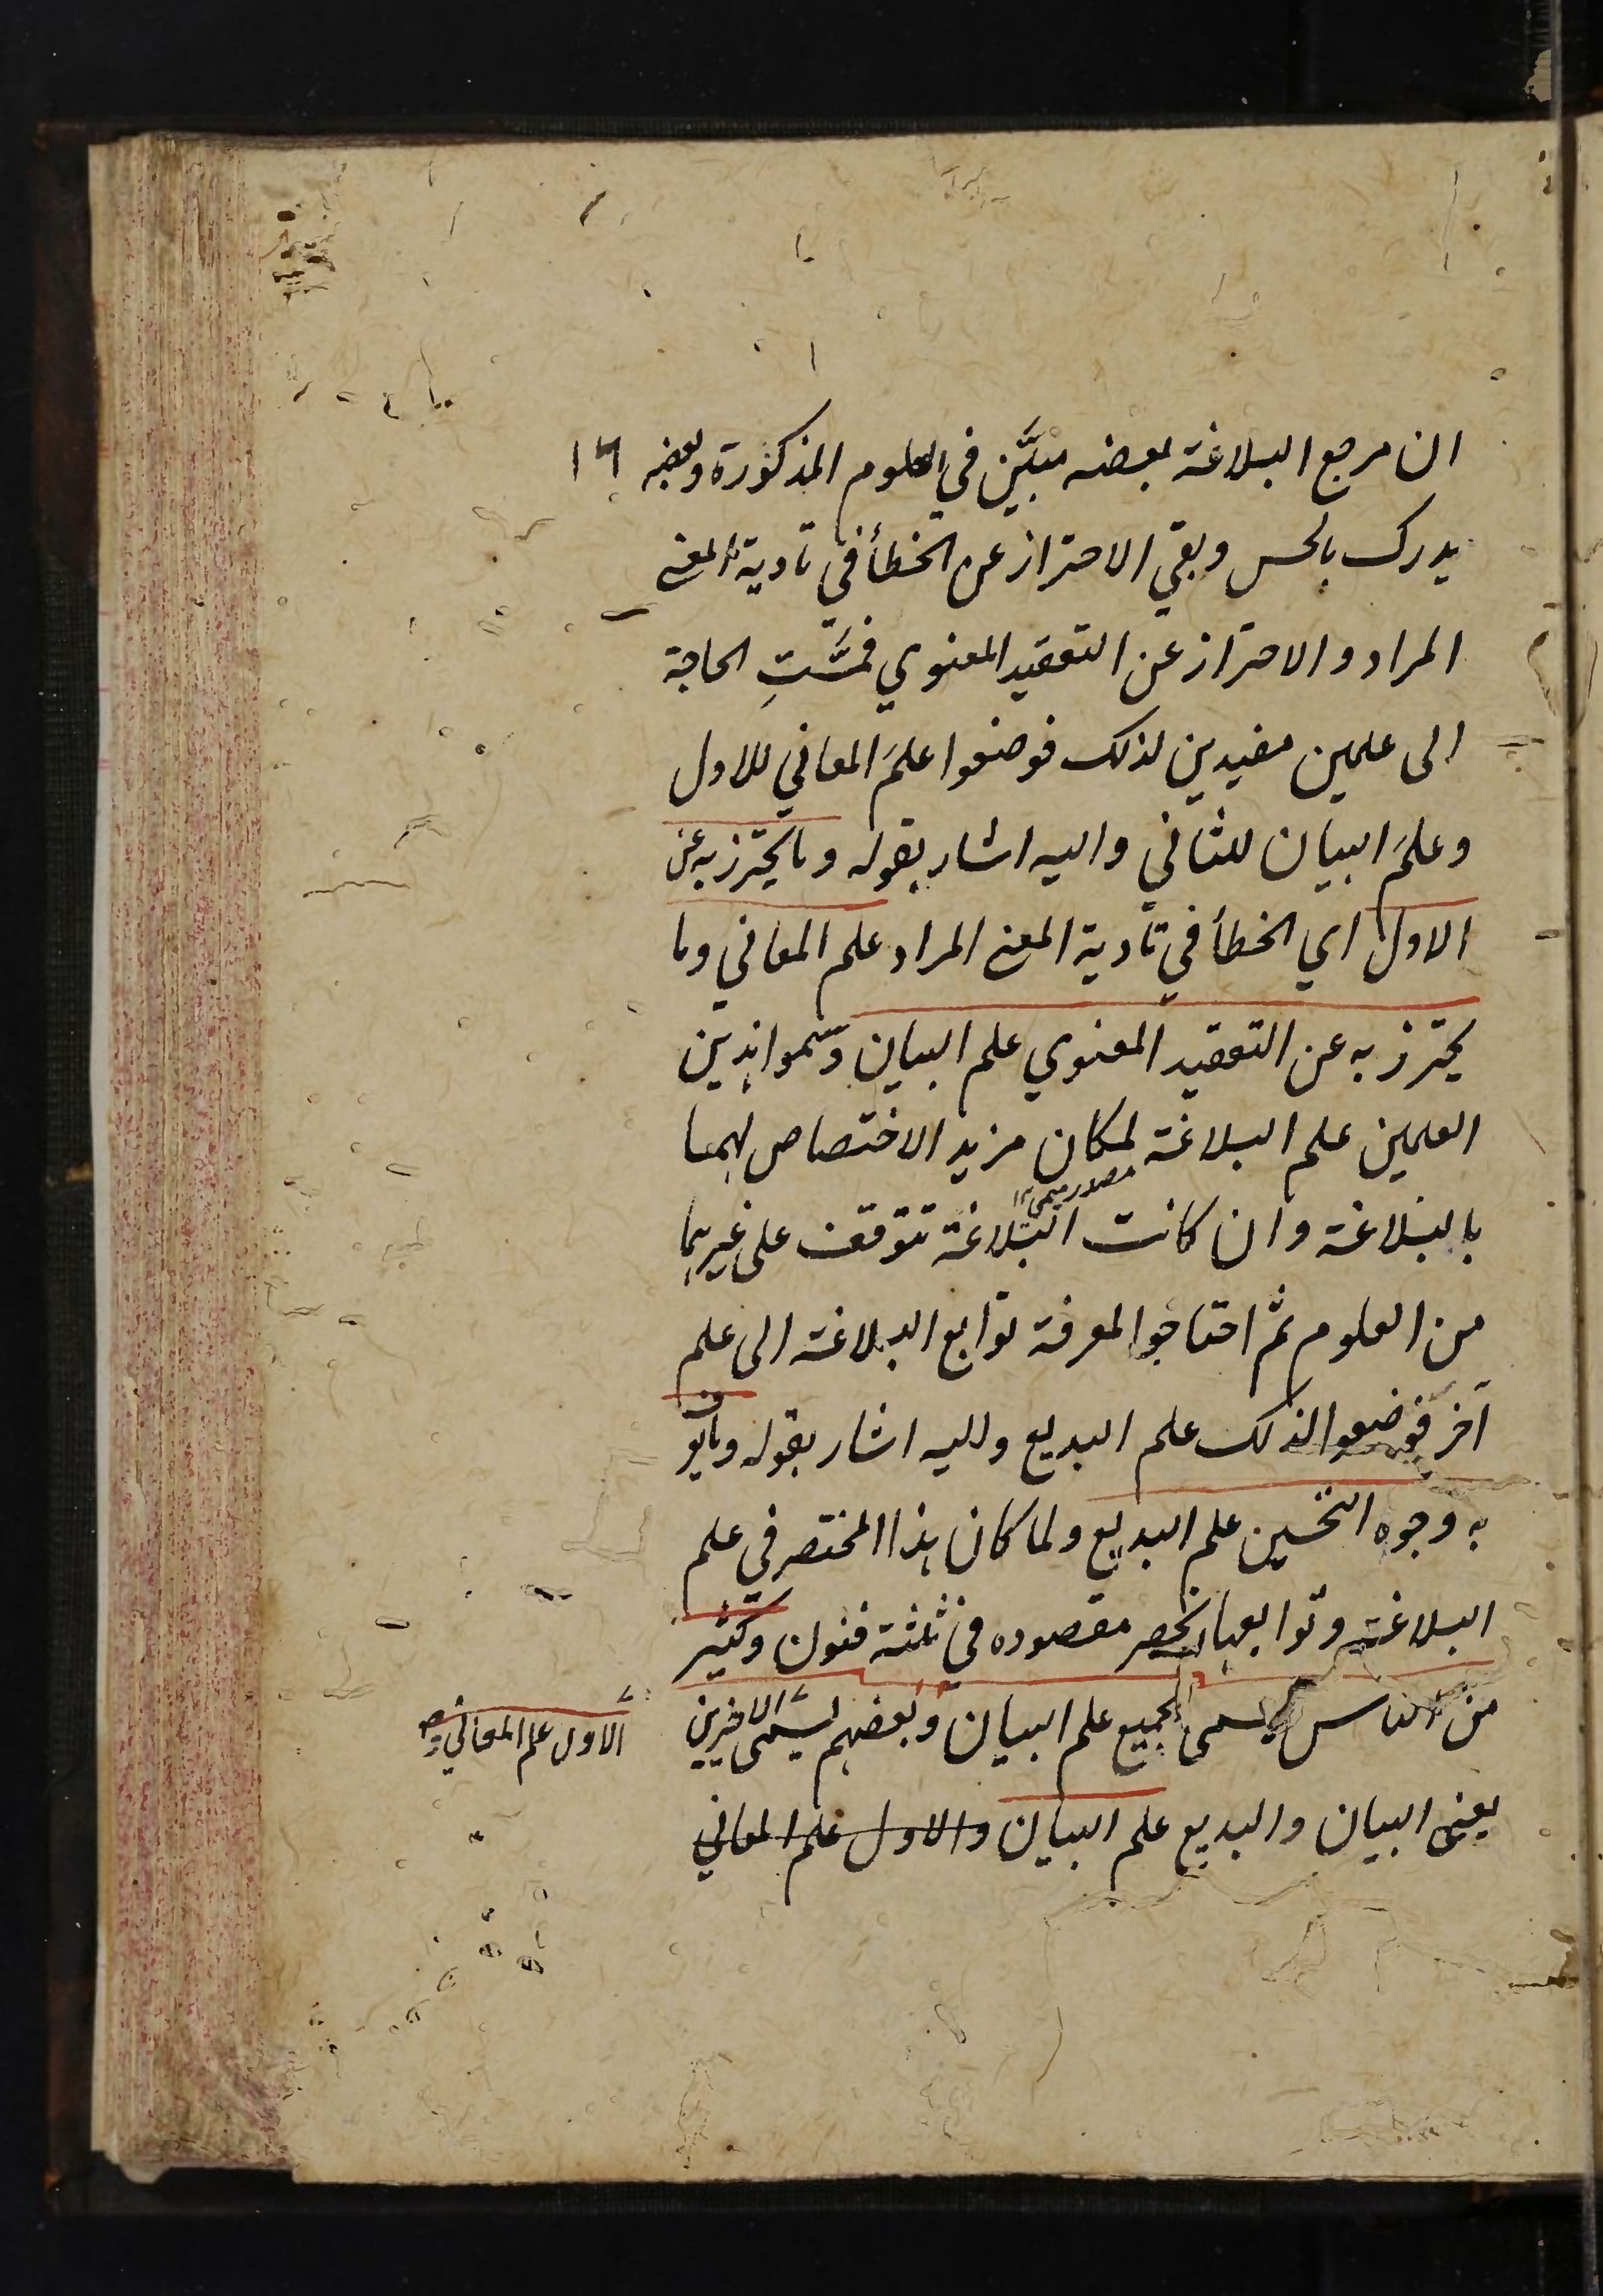 ان مرجع البلاغة بعضه مبيَّن في العلوم المذكورة وبعضه ١٦
يدرك بالحس وبقي الاحتراز عن الخطأ في تادية المعنى
المراد والاحتراز عن التعقيد المعنوي فمسَّتِ الحاجة
الى علمين مفيدين لذلك فوضعوا علمَ المعاني للاول
وعلمَ البيان للثاني واليه اشار بقوله وما يحترز به عن
الاول اي الخطأ في تأدية المعنى المراد علم المعاني وما
يحترز به عن التعقيد المعنوي علم البيان وسموا هذين
العلمين علم البلاغة لمكان مزيد الاختصاص لهما
مصدر ميمي ١٢
بالبلاغة وان كانت البلاغة تتوقف على غيرهما
من العلوم ثم احتاجوا لمعرفة توابع البلاغة الى علم
آخر فوضعوا لذلك علم البديع واليه اشار بقوله وما يعرف
به وجوه التحسين علم البديع ولما كان هذا المختصر في علم
البلاغة وتوابعها انحصر مقصوده في ثلثة فنون وكثير
من الناس يسمى الجميع علم البيان وبعضهم يسمّى الاخيرين
الاول علم المعاني و
يعنى البيان والبديع علم البيان والاول علم المعاني